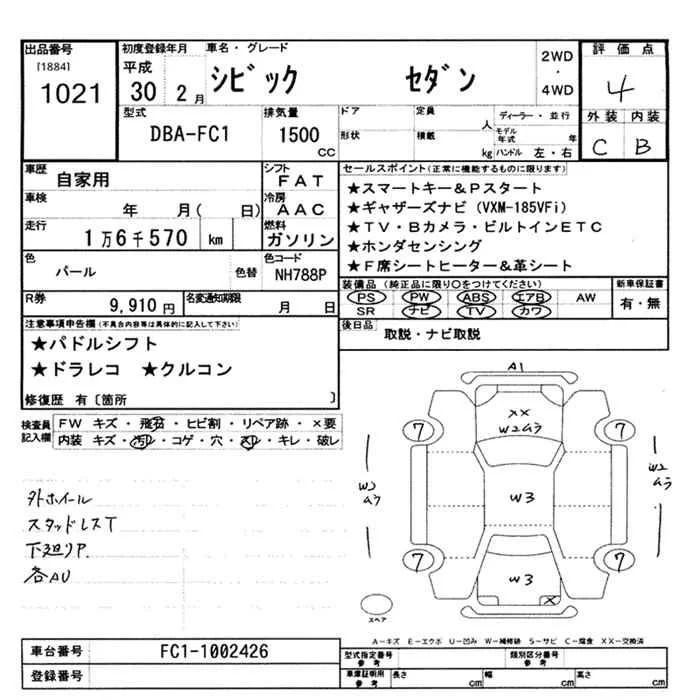 出品番号 初度登録年月 車名・グレード 2WD ・ 4WD 評価点
[1884]
1021 平成 30 2月 シビック セダン 4
型式 排気量 ドア 定員 人 ディーラー・並行 外装 内装
DBA-FC1 1500 CC 形状 積載 kg モデル年式 年 ハンドル 左・右 C B
車歴 自家用 シフト FAT セールスポイント(正常に機能するものに限ります)
車検 年 月( 日) 冷房 AAC ★スマートキー&Pスタート
走行 1万6千570 km 燃料 ガソリン ★ギャザーズナビ (VXM-185VFi)
★TV・Bカメラ・ビルトインETC
★ホンダセンシング
★F席シートヒーター&革シート
色 パール 色替 色コード NH788P
装備品 (純正品に限り○をつけてください) 新車保証書
PS PW ABS エアB AW 有・無
SR ナビ TV カワ
R券 9,910円 名変通知期限 月 日
後日品 取説・ナビ取説
注意事項申告欄(不具合内容等は具体的に記入して下さい)
★パドルシフト
★ドラレコ ★クルコン
修復歴 有〔箇所 〕
検査員記入欄 FW キズ・飛石・ヒビ割・リペア跡・×要
内装 キズ・汚れ・コゲ・穴・スレ・キレ・破レ
外ホイール
スタッドレスT
下廻りP.
各AU
A1
XX
W2ムラ
7 7
W2ムラ W3 W2ムラ
7 7
W3
X
スペア
A-キズ E-エクボ U-凹み W-補修跡 S-サビ C-腐食 XX-交換済
車台番号 FC1-1002426 型式指定番号 参考 類別区分番号 参考
登録番号 車庫証明用 参考 長さ cm 幅 cm 高さ cm